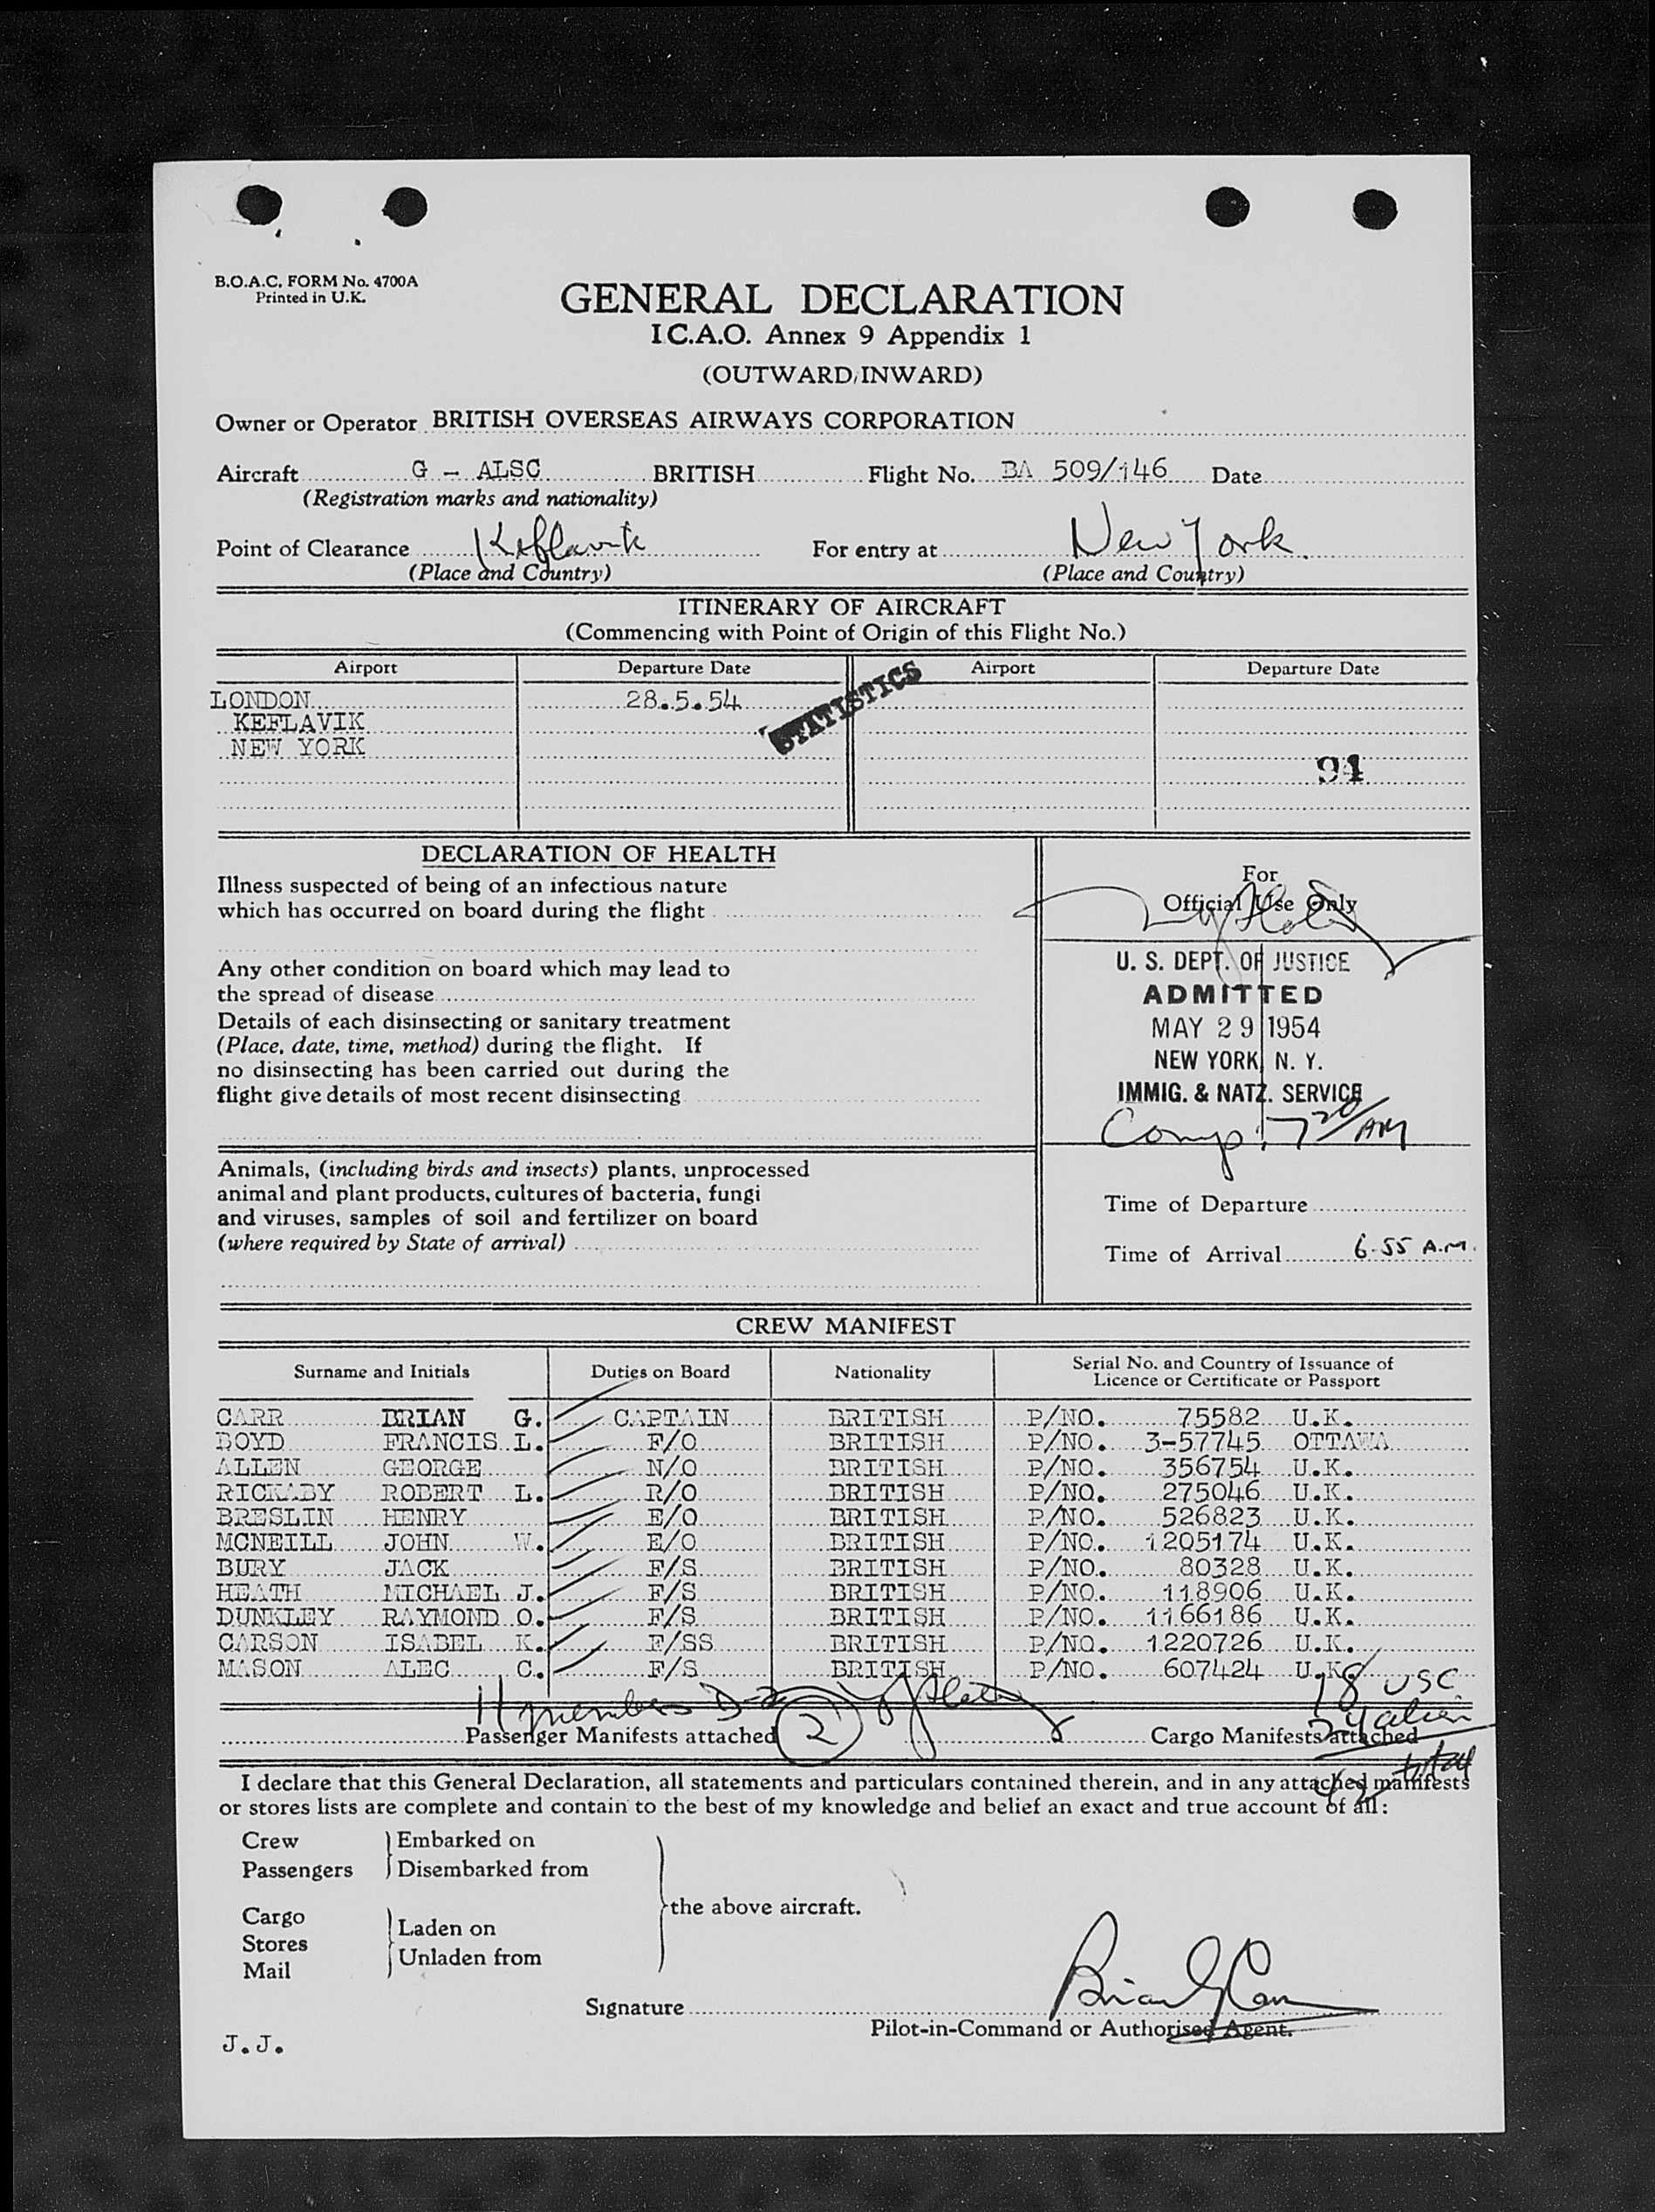 B.O.A.C. FORM No. 4700A
Printed in U.K.
GENERAL DECLARATION
I.C.A.O. Annex 9 Appendix 1
(OUTWARD/INWARD)
Owner or Operator BRITISH OVERSEAS AIRWAYS CORPORATION
Aircraft G - ALSC BRITISH Flight No. BA 509/146 Date
(Registration marks and nationality)
Point of Clearance Keflavik For entry at New York.
(Place and Country) (Place and Country)
ITINERARY OF AIRCRAFT
(Commencing with Point of Origin of this Flight No.)
Airport Departure Date Airport Departure Date
STATISTICS
LONDON 28.5.54
KEFLAVIK
NEW YORK
94
DECLARATION OF HEALTH
Illness suspected of being of an infectious nature
which has occurred on board during the flight
Any other condition on board which may lead to
the spread of disease
Details of each disinsecting or sanitary treatment
(Place, date, time, method) during the flight. If
no disinsecting has been carried out during the
flight give details of most recent disinsecting
Animals, (including birds and insects) plants, unprocessed
animal and plant products, cultures of bacteria, fungi
and viruses, samples of soil and fertilizer on board
(where required by State of arrival)
For
Official Use Only
U. S. DEPT. OF JUSTICE
ADMITTED
MAY 29 1954
NEW YORK, N. Y.
IMMIG. & NATZ. SERVICE
Comp. 7 20/AM
Time of Departure
Time of Arrival 6.55 A.M.
CREW MANIFEST
Surname and Initials Duties on Board Nationality Serial No. and Country of Issuance of
Licence or Certificate or Passport
CARR BRIAN G. CAPTAIN BRITISH P/NO. 75582 U.K.
BOYD FRANCIS L. F/O BRITISH P/NO. 3-57745 OTTAWA
ALLEN GEORGE N/O BRITISH P/NO. 356754 U.K.
RICKABY ROBERT L. R/O BRITISH P/NO. 275046 U.K.
BRESLIN HENRY E/O BRITISH P/NO. 526823 U.K.
MCNEILL JOHN W. E/O BRITISH P/NO. 1205174 U.K.
BURY JACK F/S BRITISH P/NO. 80328 U.K.
HEATH MICHAEL J. F/S BRITISH P/NO. 118906 U.K.
DUNKLEY RAYMOND O. F/S BRITISH P/NO. 1166186 U.K.
CARSON ISABEL K. F/SS BRITISH P/NO. 1220726 U.K.
MASON ALEC C. F/S BRITISH P/NO. 607424 U.K.
11 members D-2 18 USC
Passenger Manifests attached 2 Cargo Manifests attached
24 alien
42 total
I declare that this General Declaration, all statements and particulars contained therein, and in any attached manifests
or stores lists are complete and contain to the best of my knowledge and belief an exact and true account of all:
Crew Embarked on
Passengers Disembarked from
the above aircraft.
Cargo
Stores Laden on
Mail Unladen from
Signature Brian G Carr
Pilot-in-Command or Authorised Agent.
J.J.